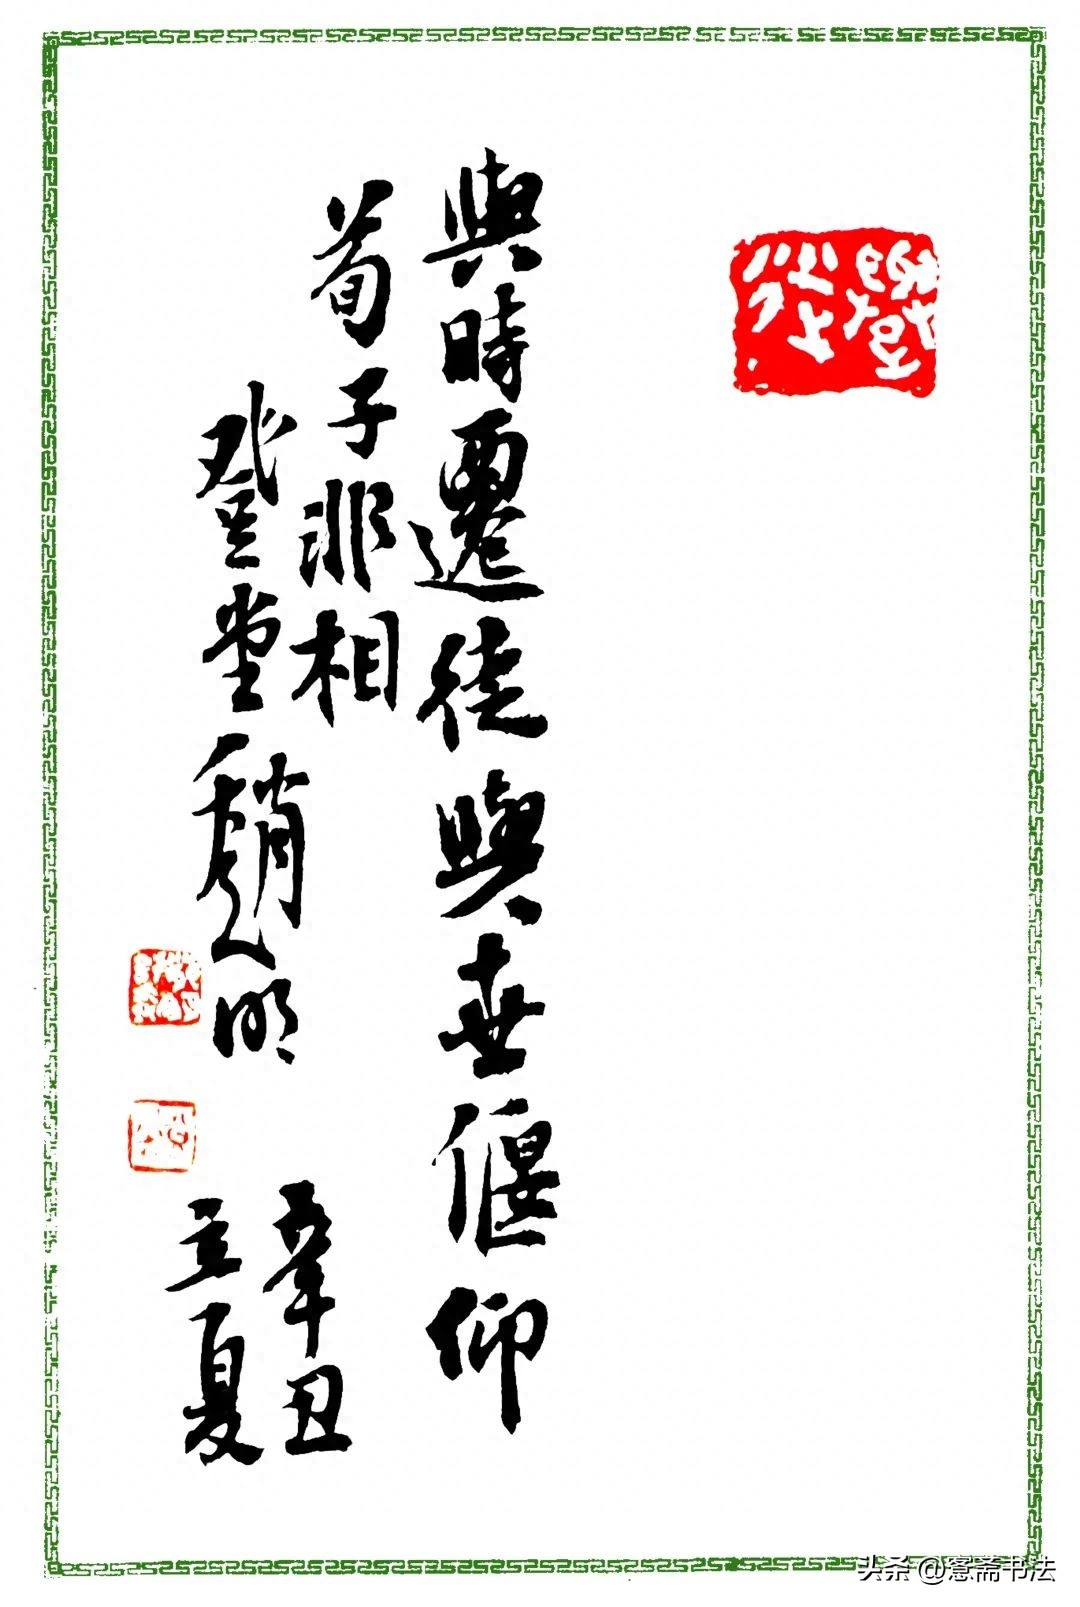 與時遷徙與世偃仰
荀子非相
登堂趙明
辛丑
立夏
头条 @愙斋书法